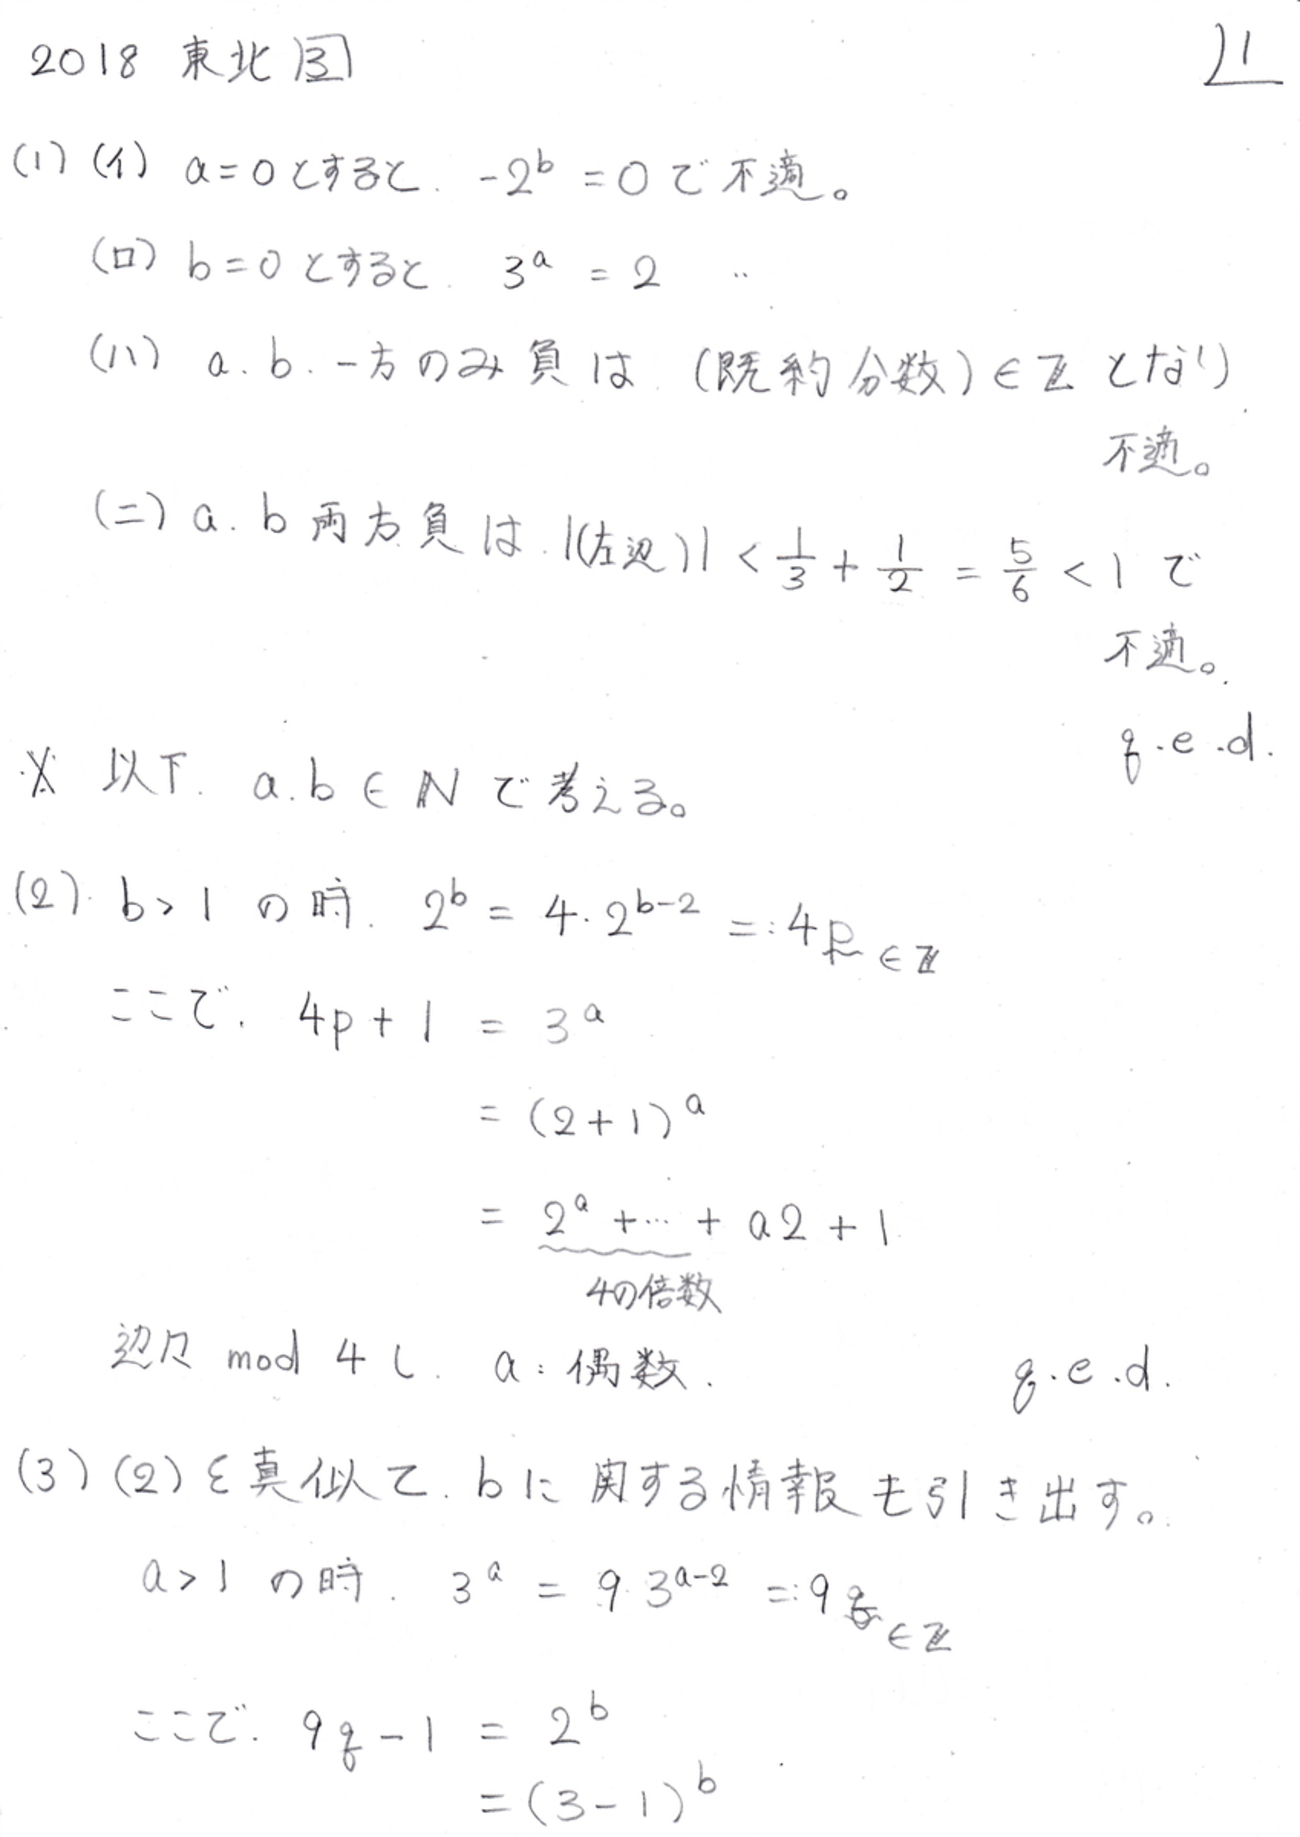 2018 東北 3
1
(1) (イ) a=0とすると. -2^b = 0 で不適。
(ロ) b=0とすると. 3^a = 2 〃
(ハ) a.b.一方のみ負は (既約分数)∈ℤ となり
不適。
(ニ) a.b両方負は. |(左辺)| < 1/3 + 1/2 = 5/6 < 1 で
不適。
q.e.d.
※ 以下. a.b∈ℕで考える。
(2). b>1 の時. 2^b = 4・2^{b-2} =: 4p ∈ℤ
ここで. 4p+1 = 3^a
= (2+1)^a
= 2^a +… + a2 + 1
4の倍数
辺々 mod 4 し. a:偶数.
q.e.d.
(3) (2)を真似て. bに関する情報も引き出す。
a>1 の時. 3^a = 9・3^{a-2} =: 9q ∈ℤ
ここで. 9q-1 = 2^b
= (3-1)^b